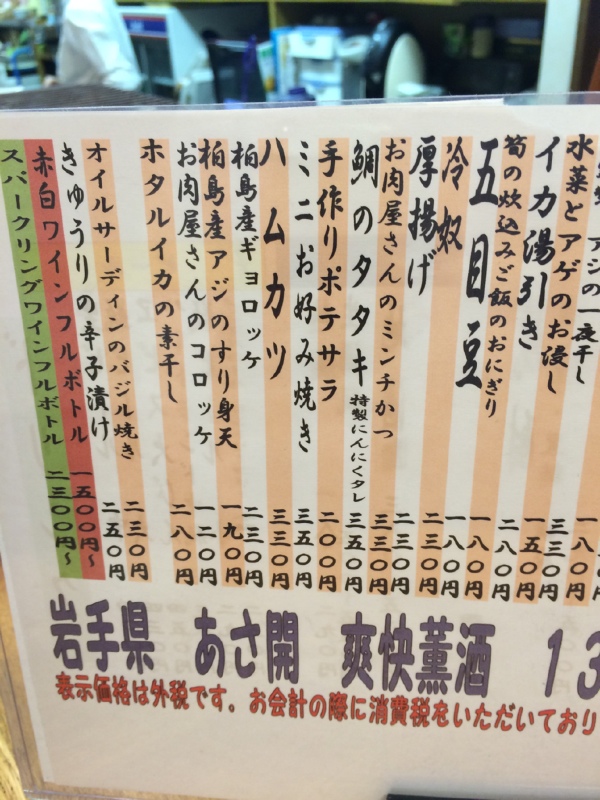 アジの一夜干し 三三〇円
水菜とアゲのお浸し 一五〇円
イカ湯引き 二八〇円
筍の炊込みご飯のおにぎり 一八〇円
五目豆 一八〇円
冷奴 二三〇円
厚揚げ 二三〇円
お肉屋さんのミンチかつ 三三〇円
鯛のタタキ 特製にんにくタレ 三五〇円
手作りポテサラ 二〇〇円
ミニお好み焼き 三五〇円
ハムカツ 三三〇円
柏島産ギョロッケ 二三〇円
柏島産アジのすり身天 一九〇円
お肉屋さんのコロッケ 一二〇円
ホタルイカの素干し 二八〇円
オイルサーディンのバジル焼き 二三〇円
きゅうりの辛子漬け 二五〇円
赤白ワインフルボトル 一五〇〇円〜
スパークリングワインフルボトル 二三〇〇円〜
岩手県 あさ開 爽快薫酒 13
表示価格は外税です。お会計の際に消費税をいただいており